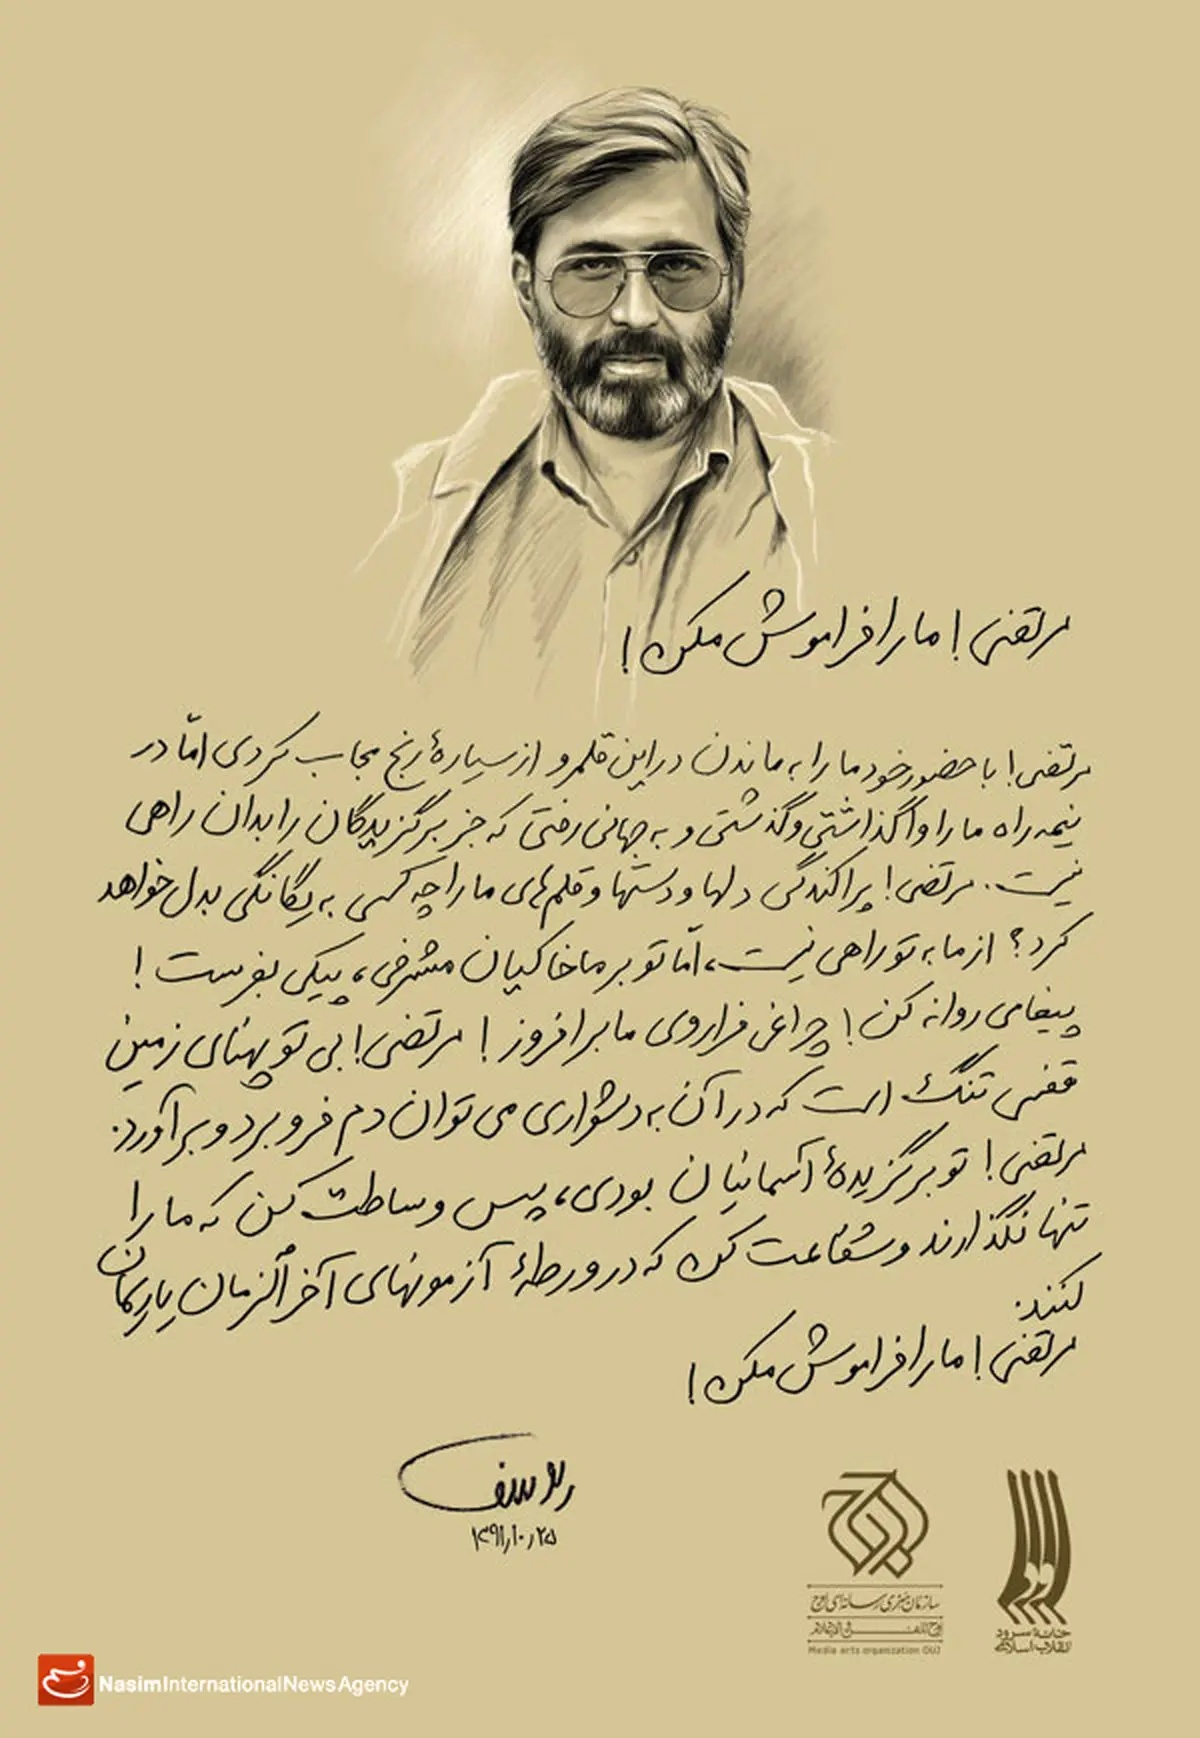 مرتضی! ما را فراموش مکن!
مرتضی! با حضور خود ما را به ماندن در این قلمرو از سیارهٔ رنج مجاب کردی امّا در
نیمه راه ما را واگذاشتی و گذشتی و به جهانی رفتی که جز برگزیدگان را بدان راهی
نیست. مرتضی! پراکندگی دلها و دستها و قلم‌های ما را چه کسی به یگانگی بدل خواهد
کرد؟ از ما به تو راهی نیست، امّا تو بر ما خاکیان مشرفی، پیکی بفرست!
پیغامی روانه کن! چراغی فراروی ما برافروز! مرتضی! بی تو پهنای زمین
قفسی تنگ است که در آن به دشواری می توان دم فرو برد و برآورد.
مرتضی! تو برگزیدهٔ آسمانیان بودی، پس وساطت کن که ما را
تنها نگذارند و شفاعت کن که در ورطهٔ آزمونهای آخرالزمان یاریمان
کنند.
مرتضی! ما را فراموش مکن!
۱۳۹۱٫۱۰٫۲۵
اوج
سازمان هنری رسانه‌ای اوج
Media arts organization OUJ
خانهٔ سرود
انقلاب اسلامی
NasimInternationalNewsAgency